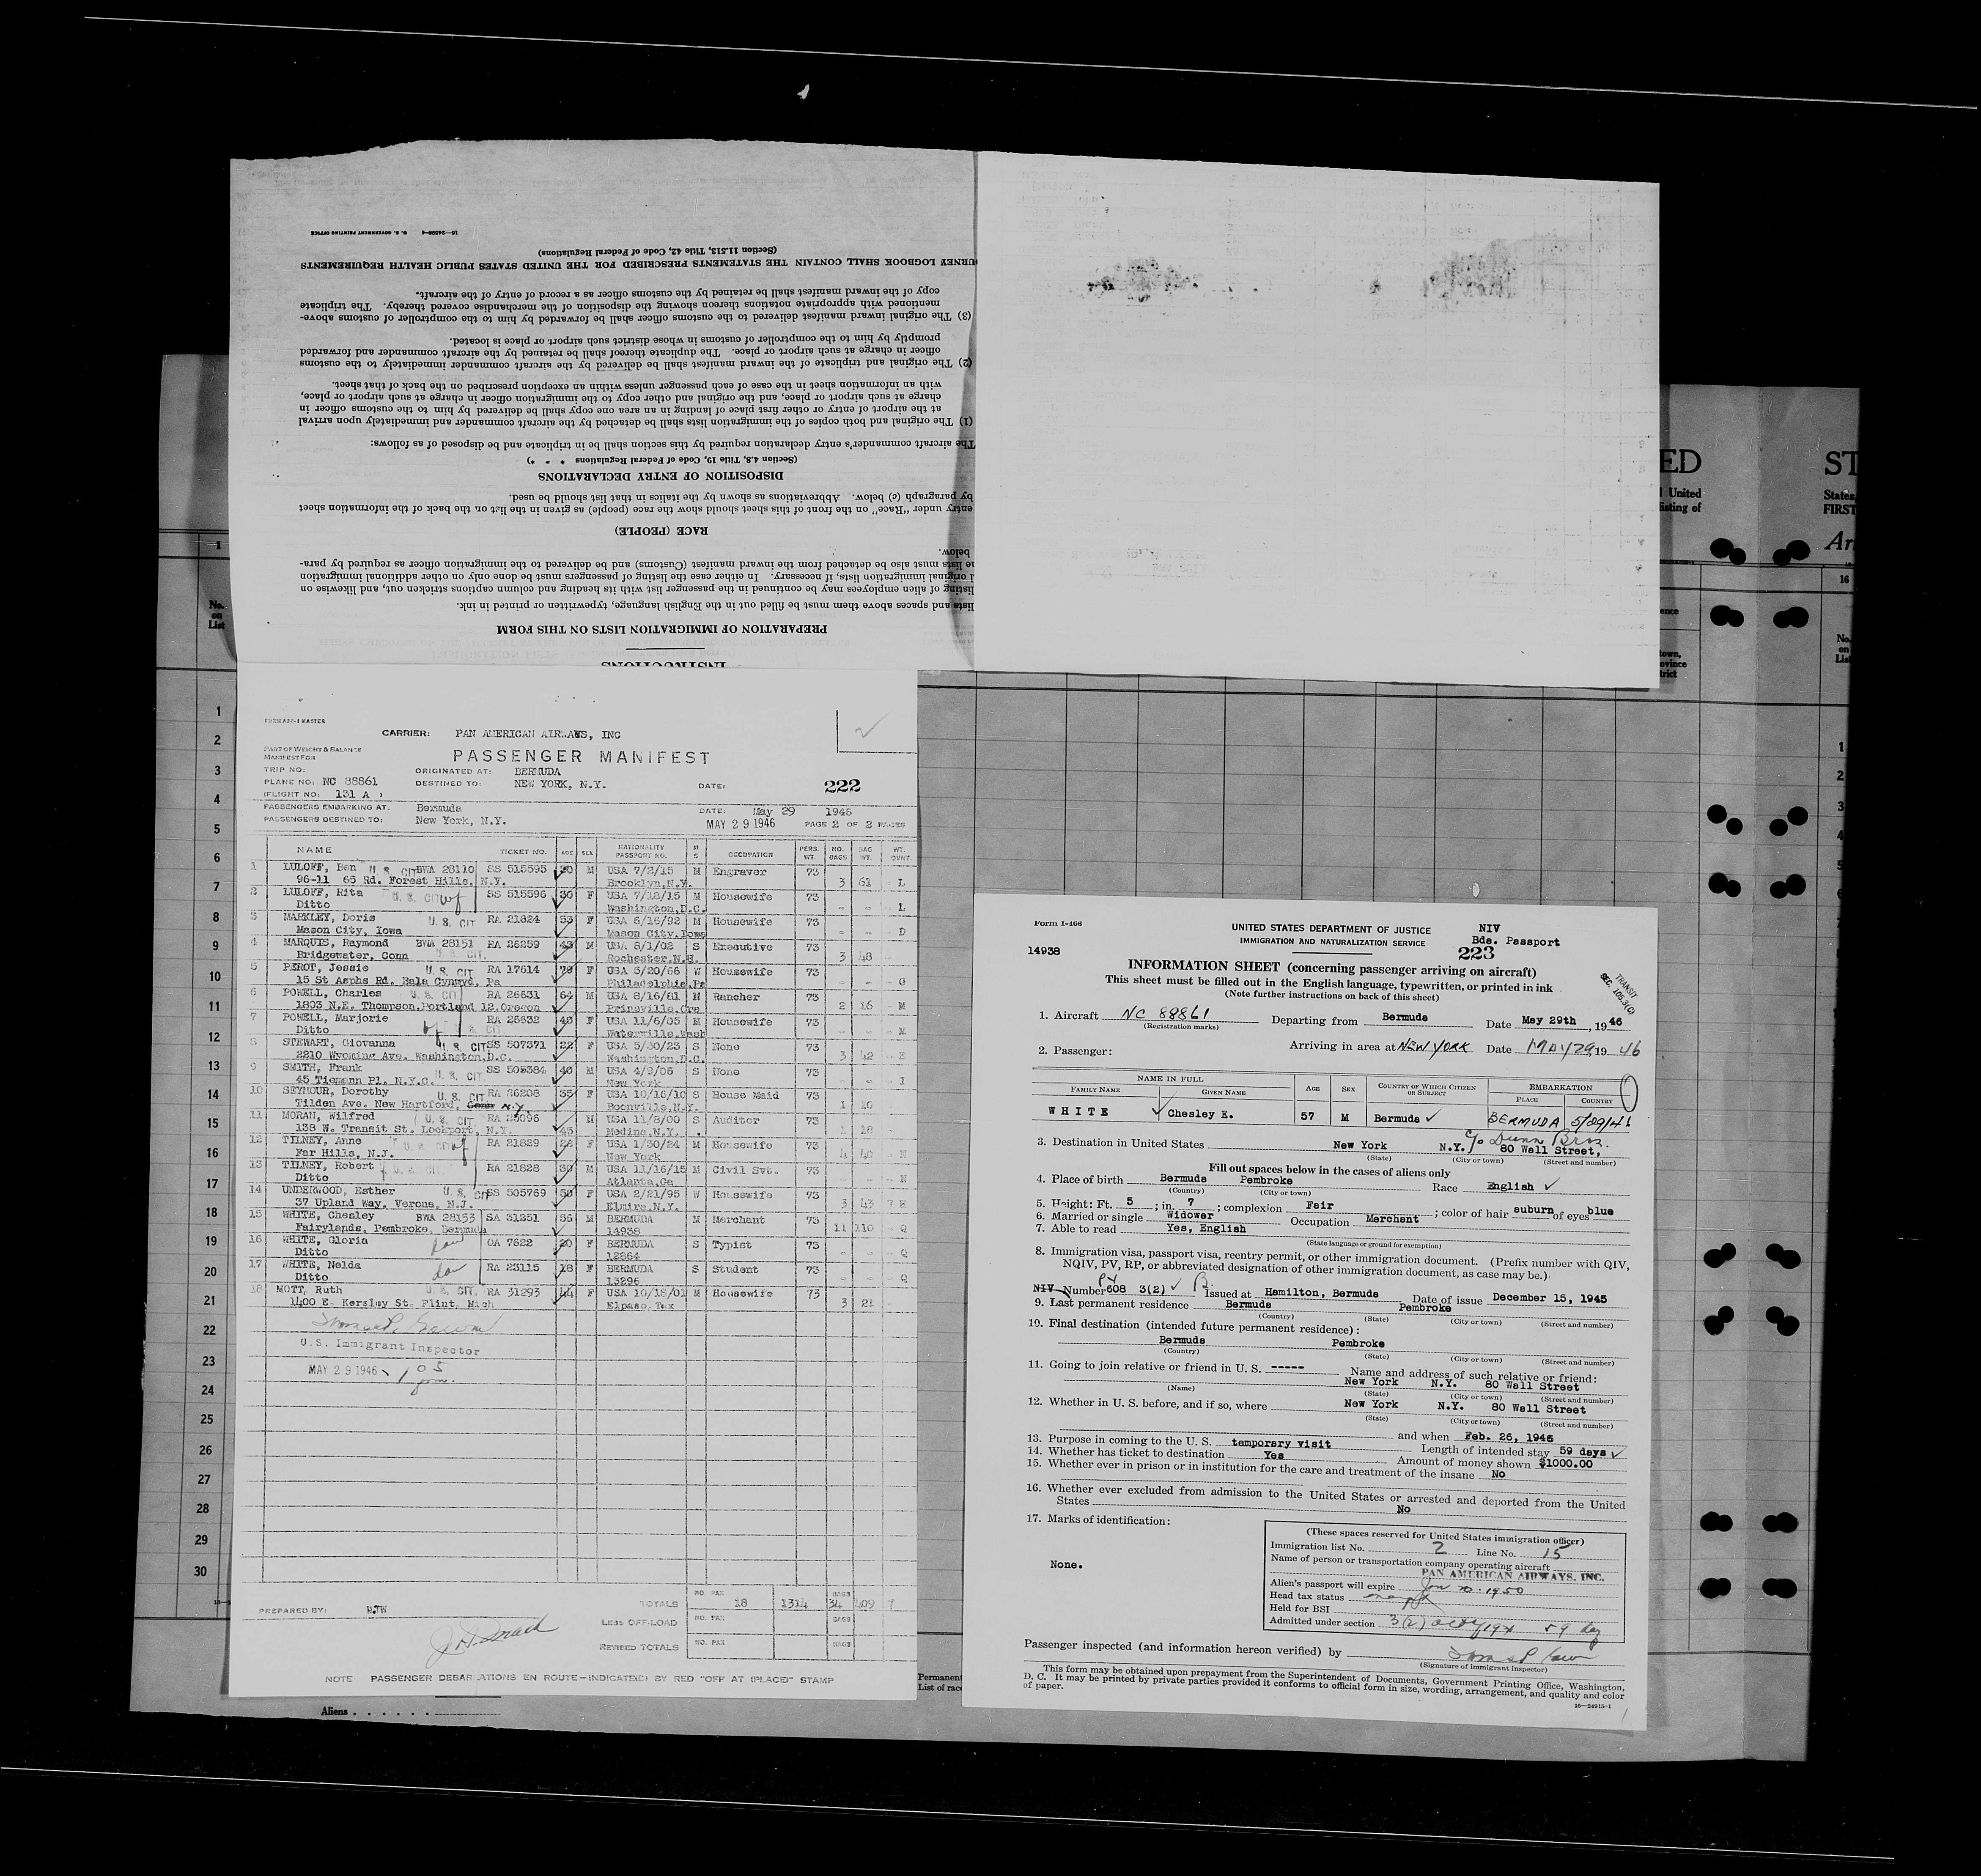 INSTRUCTIONS
PREPARATION OF IMMIGRATION LISTS ON THIS FORM
lists and spaces above them must be filled out in the English language, typewritten or printed in ink.
listing of alien employees may be continued in the passenger list with its heading and column captions stricken out, and likewise on
original immigration lists, if necessary. In either case the listing of passengers must be done only on other additional immigration
lists must also be detached from the inward manifest (Customs) and be delivered to the immigration officer as required by para-
below.
RACE (PEOPLE)
entry under "Race" on the front of this sheet should show the race (people) as given in the list on the back of the information sheet
by paragraph (c) below. Abbreviations as shown by the italics in that list should be used.
DISPOSITION OF ENTRY DECLARATIONS
(Section 4.8, Title 19, Code of Federal Regulations * * *)
The aircraft commander's entry declaration required by this section shall be in triplicate and be disposed of as follows:
(1) The original and both copies of the immigration lists shall be detached by the aircraft commander and immediately upon arrival
at the airport of entry or other first place of landing in an area one copy shall be delivered by him to the customs officer in
charge at such airport or place, and the original and other copy to the immigration officer in charge at such airport or place,
with an information sheet in the case of each passenger unless within an exception prescribed on the back of that sheet.
(2) The original and triplicate of the inward manifest shall be delivered by the aircraft commander immediately to the customs
officer in charge at such airport or place. The duplicate thereof shall be retained by the aircraft commander and forwarded
promptly by him to the comptroller of customs in whose district such airport or place is located.
(3) The original inward manifest delivered to the customs officer shall be forwarded by him to the comptroller of customs above-
mentioned with appropriate notations thereon showing the disposition of the merchandise covered thereby. The triplicate
copy of the inward manifest shall be retained by the customs officer as a record of entry of the aircraft.
URNEY LOGBOOK SHALL CONTAIN THE STATEMENTS PRESCRIBED FOR THE UNITED STATES PUBLIC HEALTH REQUIREMENTS
(Section 11.513, Title 42, Code of Federal Regulations)
U. S. GOVERNMENT PRINTING OFFICE
CARRIER: PAN AMERICAN AIRWAYS, INC
PART OF WEIGHT & BALANCE
MANIFEST FOR
PASSENGER MANIFEST
TRIP NO: ORIGINATED AT: BERMUDA
PLANE NO: NC 88861 DESTINED TO: NEW YORK, N.Y. DATE: 222
(FLIGHT NO: 131 A )
PASSENGERS EMBARKING AT: Bermuda DATE: May 29 1946
PASSENGERS DESTINED TO: New York, N.Y. MAY 29 1946 PAGE 2 OF 2 PAGES
NAME TICKET NO. AGE SEX NATIONALITY PASSPORT NO. M S OCCUPATION PERS. WT. NO. BAGS BAG WT. WT. OVNT.
1 LULOFF, Ben U. S. CIT BWA 28110 SS 515595 30 M USA 7/2/15 M Engraver 73
96-11 65 Rd. Forest Hills, N.Y. Brooklyn,N.Y. 3 61 L
2 LULOFF, Rita U. S. CIT wf SS 515596 30 F USA 7/18/15 M Housewife 73
Ditto Washington,D.C. - - L
3 MARKLEY, Doris U. S. CIT RA 21824 53 F USA 6/16/92 M Housewife 73
Mason City, Iowa Mason City,Iowa - - D
4 MARQUIS, Raymond BWA 28151 RA 26259 43 M USA 8/1/02 S Executive 73
Bridgewater, Conn U. S. CIT. Rochester,N.H. 3 48
5 PEROT, Jessie U. S. CIT RA 17614 79 F USA 5/20/66 W Housewife 73
15 St Asphs Rd. Bala Cynwyd, Pa Philadelphia,Pa - -
6 POWELL, Charles U. S. CIT RA 26631 64 M USA 8/16/81 M Rancher 73
1893 N.E. Thompson,Portland 12,Oregon Prineville,Ore 2 16 M
7 POWELL, Marjorie RA 26632 40 F USA 11/6/05 M Housewife 73
Ditto wf U. S. CIT Waterville,Wash - - M
8 STEWART, Giovanna U. S. CIT SS 507371 22 F USA 5/30/23 S None 73
2210 Wyoming Ave. Washington,D.C. Washington,D.C. 3 42 E
9 SMITH, Frank U. S. CIT SS 505384 40 M USA 4/9/06 S None 73
45 Tiemann Pl. N.Y.C. New York - - I
10 SEYMOUR, Dorothy U. S. CIT RA 26208 35 F USA 10/16/10 S House Maid 73
Tilden Ave. New Hartford, N.Y. Boonville,N.Y. 1 10
11 MORAN, Wilfred U. S. CIT RA 25096 45 M USA 11/8/00 S Auditor 73
138 W. Transit St. Lockport, N.Y. Medina,N.Y. 1 18
12 TILNEY, Anne U. S. CIT wf RA 21829 22 F USA 1/30/24 M Housewife 73
Far Hills, N.J. New York 4 40 N
13 TILNEY, Robert U. S. CIT RA 21828 30 M USA 11/16/15 M Civil Svt. 73
Ditto Atlanta,Ga - - N
14 UNDERWOOD, Esther U. S. CIT SS 505769 50 F USA 2/21/95 W Housewife 73
37 Upland Way, Verona, N.J. Elmira,N.Y. 3 43 7 E
15 WHITE, Chesley BWA 28153 SA 31251 56 M BERMUDA M Merchant 73
Fairylands, Pembroke, Bermuda 14938 11 110 - Q
16 WHITE, Gloria dau OA 7622 20 F BERMUDA S Typist 73
Ditto 12864 - - Q
17 WHITE, Nelda dau RA 23115 18 F BERMUDA S Student 73
Ditto 13296 - - Q
18 MOTT, Ruth U. S. CIT. RA 31293 44 F USA 10/18/01 M Housewife 73
1400 E. Kersley St. Flint, Mich Elpaso,Tex 3 21
U.S. Immigrant Inspector
MAY 29 1946 1 05 pm.
TOTALS NO. PAX 18 1314 BAGS 34 409 7
PREPARED BY: WJW
LESS OFF-LOAD NO. PAX BAGS
REVISED TOTALS NO. PAX BAGS
NOTE PASSENGER DEBARKATIONS EN ROUTE—INDICATED BY RED "OFF AT (PLACE)" STAMP
Form I-466
14938
UNITED STATES DEPARTMENT OF JUSTICE
IMMIGRATION AND NATURALIZATION SERVICE
NIV
Bda. Passport
223
INFORMATION SHEET (concerning passenger arriving on aircraft)
This sheet must be filled out in the English language, typewritten, or printed in ink
(Note further instructions on back of this sheet)
TRANSIT
SEC. 105.3(G)
1. Aircraft NC 88861 Departing from Bermuda Date May 29th, 1946
(Registration marks)
2. Passenger: Arriving in area at NEW YORK Date MAY 29, 1946
NAME IN FULL AGE SEX COUNTRY OF WHICH CITIZEN OR SUBJECT EMBARKATION
FAMILY NAME GIVEN NAME PLACE COUNTRY
WHITE Chesley E. 57 M Bermuda BERMUDA 5/29/46
c/o Dunn Bros.
3. Destination in United States New York N.Y. 80 Wall Street,
(State) (City or town) (Street and number)
Fill out spaces below in the cases of aliens only
4. Place of birth Bermuda Pembroke Race English
(Country) (City or town)
5. Height: Ft. 5 ; in. 7 ; complexion Fair ; color of hair auburn of eyes blue
6. Married or single Widower Occupation Merchant
7. Able to read Yes, English
(State language or ground for exemption)
8. Immigration visa, passport visa, reentry permit, or other immigration document. (Prefix number with QIV,
NQIV, PV, RP, or abbreviated designation of other immigration document, as case may be.)
NIV PV Number 608 3(2) Issued at Hamilton, Bermuda Date of issue December 15, 1945
9. Last permanent residence Bermuda Pembroke
(Country) (State) (City or town) (Street and number)
10. Final destination (intended future permanent residence):
Bermuda Pembroke
(Country) (State) (City or town) (Street and number)
11. Going to join relative or friend in U. S. ----- Name and address of such relative or friend:
New York N.Y. 80 Wall Street
(Name) (State) (City or town) (Street and number)
12. Whether in U. S. before, and if so, where New York N.Y. 80 Wall Street
(State) (City or town) (Street and number)
and when Feb. 26, 1946
13. Purpose in coming to the U. S. temporary visit Length of intended stay 59 days
14. Whether has ticket to destination Yes Amount of money shown $1000.00
15. Whether ever in prison or in institution for the care and treatment of the insane No
16. Whether ever excluded from admission to the United States or arrested and deported from the United
States No
17. Marks of identification:
None.
(These spaces reserved for United States immigration officer)
Immigration list No. 2 Line No. 15
Name of person or transportation company operating aircraft
PAN AMERICAN AIRWAYS, INC.
Alien's passport will expire 1950
Head tax status
Held for BSI
Admitted under section 3(2) 59 day
Passenger inspected (and information hereon verified) by
(Signature of Immigrant Inspector)
This form may be obtained upon prepayment from the Superintendent of Documents, Government Printing Office, Washington,
D. C. It may be printed by private parties provided it conforms to official form in size, wording, arrangement, and quality and color
of paper.
16—24915-1
No. on List
1
2
3
4
5
6
7
8
9
10
11
12
13
14
15
16
17
18
19
20
21
22
23
24
25
26
27
28
29
30
Aliens
Permanent
List of race
ED
United
listing of
ence
town,
ovince
trict
ST
States,
FIRST
Ar
16
No.
on
List
1
2
3
4
5
6